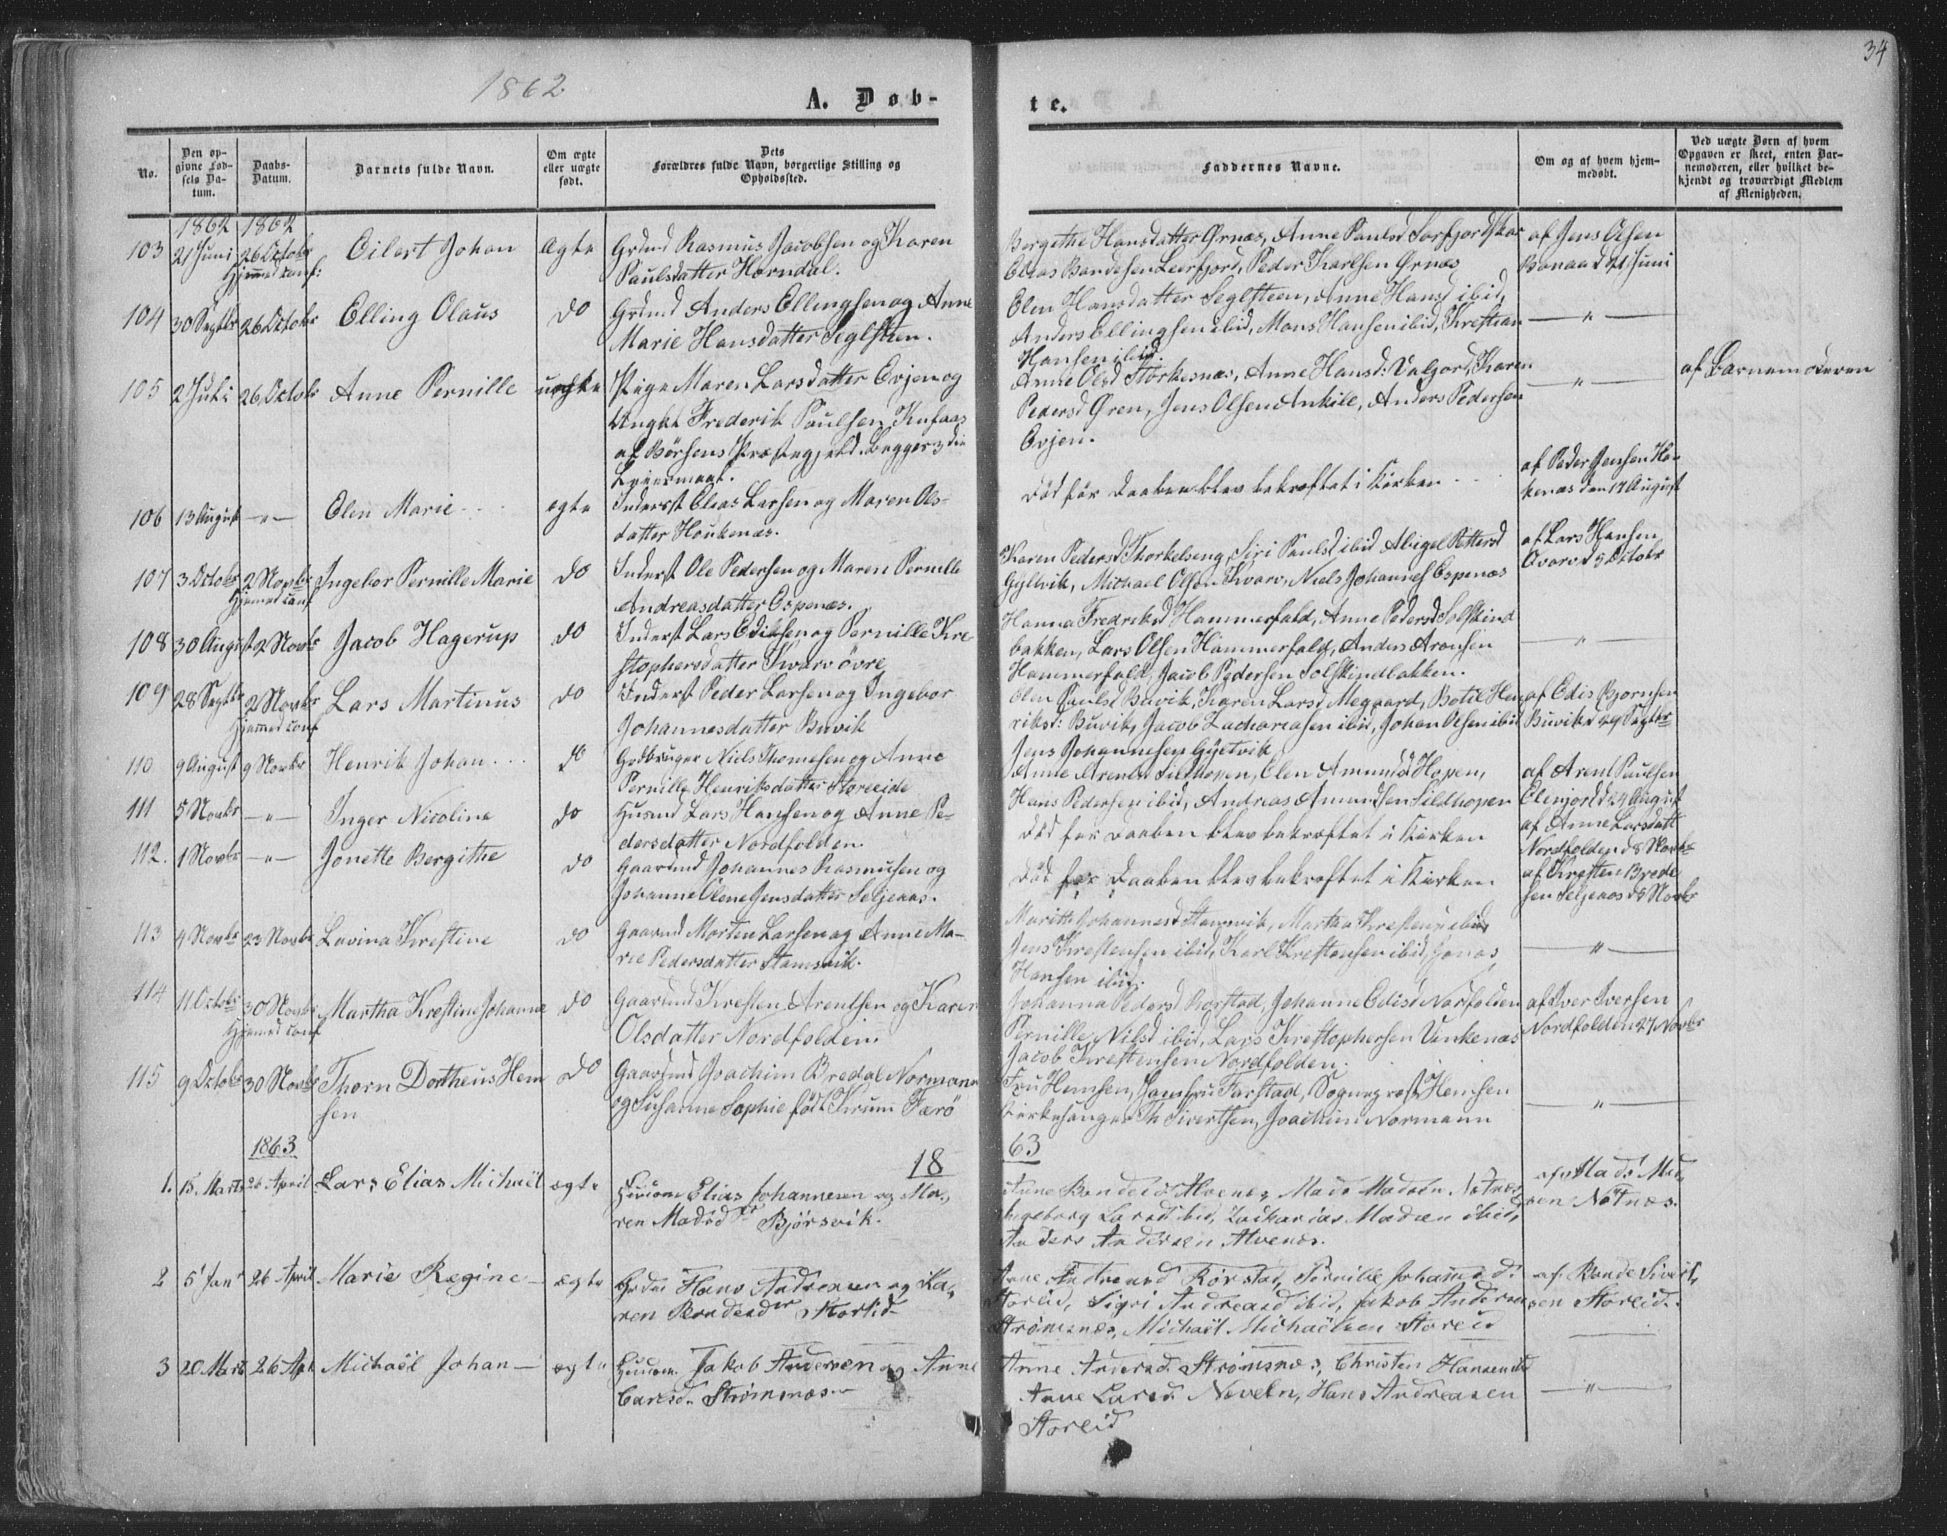 34
1862
A. Døb-
te.
No.
Den op-
givne Fød-
sels Da-
tum.
Daabs-
Datum.
Barnets fulde Navn.
Om ægte
eller uægte
født.
Dets
Forældres fulde Navn, borgerlige Stilling og
Opholdssted.
Faddernes Navne.
Om og af hvem hjem-
medøbt.
Ved uægte Børn af hvem
Opgaven er skeet, enten Bar-
nemoderen, eller hvilket be-
kjendt og troværdigt Medlem
af Menigheden.
1862 1862
103 21 Juni 26 Octobr Eilert Johan ægte Grdmd Rasmus Jacobsen og Karen
Hjemmed conf:
Paulsdatter Horndal.
Bergithe Hansdatter Ørnæs, Anne Paulsd Sørfjordskar
Elias Bendiksen Leerfjord, Peder Karlsen Ørnæs
af Jens Olsen
Bonaa d 21 Juni
104 30 Septbr 26 Octobr Elling Olaus do Grdmd Anders Ellingsen og Anne
Marie Hansdatter Seglsteen.
Olen Hansdatter Seglsteen, Anne Hansd ibid,
Anders Ellingsen ibid, Mons Hansen ibid, Krestian
Hansen ibid.
— " —
105 2 Juli 26 Octobr Anne Pernille uægte Pige Maren Larsdatter Evjen og
Ungkl Frederik Paulsen
af Børsens Præstegjeld. Begges 3die
Leiermaal.
Anne Olsd Storkesnæs, Anne Hansd: Valjord, Karen
Pedersd Øren, Jens Olsen Ankile, Anders Pedersen
Evjen.
— " —
af Barnemoderen
106 13 August —"— Olen Marie ægte Inderst Elias Larsen og Maren Ols-
datter Houkenæs.
Død før Daaben blev bekræftet i Kirken
af Peder Jensen Ho-
kenæs den 17 August
107 3 Octobr 2 Novbr Ingebor Pernille Marie do Inderst Ole Pedersen og Maren Pernille
Hjemmed conf
Andreasdatter Espenæs.
Karen Pedersd Thorkelseng, Siri Paulsd ibid Abigel Pettersd
Gyltvik, Michael Olsen Kvarv, Niels Johannes Espenæs
af Lars Hansen
Qvarv d 5 Octobr
108 30 August 2 Novbr Jacob Hagerup do Inderst Lars Edisen og Pernille Kre-
stophersdatter Kvarv øvre
Hanna Fredriksd Hammerfald, Anne Pedersd Solskind
bakken, Lars Olsen Hammerfald, Anders Aronsen
Hammerfald, Jacob Pedersen Solskindbakken.
— " —
109 28 Septbr 2 Novbr Lars Martinus do Inderst Peder Larsen og Ingebor
Hjemmed conf
Johannesdatter Buvik
Olen Paulsd Buvik, Karen Larsd Megaard, Botil Hen
riksd: Buvik, Jacob Zachariasen ibid, Johan Olsen ibid
Jens Johannesen Gyltvik
af Edis Bjørnsen
Buvik d 29 Septbr
110 9 August 9 Novbr Henrik Johan do Gdbruger Niels Thomesen og Anne
Pernille Henriksdatter Storeeide
Anne Arentsd Sildhopen, Olen Amundsd Hopen,
Hans Pedersen ibid, Andreas Amundsen Sildhopen
af Arent Paulsen
Elenjord d 24 August
111 5 Novbr —"— Inger Nicoline do Husmd Lars Hansen og Anne Pe-
dersdatter Nordfolden
Død før Daaben blev bekræftet i Kirken
af Anne Larsdatt
Nordfolden d 8 Novbr
112. 1 Novbr —"— Jonette Bergithe do Gaardmd Johannes Rasmusen og
Johanne Olene Jensdatter Seljeaas.
Død før Daaben blev bekræftet i Kirken
af Kresten Brede
sen Seljeaas d 8 Novbr
113 4 Novbr 23 Novbr Lovina Krestine do Gaardmd Morten Larsen og Anne Ma-
rie Pedersdatter Stamsvik.
Marith Johannesd Stamsvik, Martha Krestensd ibid
Jens Krestensen ibid, Karl Krestensen ibid, Jonas
Hansen ibid.
— " —
114 11 Octobr 30 Novbr Martha Krestine Johanne do Gaardmd Kresten Arentsen og Karen
Hjemmed conf
Olsdatter Nordfolden.
Johanna Pedersd Rørstad, Johanne Edisd Nordfolden
Pernille Nilsd ibid, Lars Krestophersen Vinkenæs
Jacob Krestensen Nordfolden.
af Iver Iversen
Nordfolden 27 Novbr
115 9 Octobr 30 Novbr Thorn Dortheus Hem
sen
do Gaardmd Joachim Bredal Normann
og Susanne Sophie født Krum Færø
Fru Hemsen, Jomfru Farstad, Sogneprest Hemsen
Kirkesanger Th Sivertsen, Joachim Normann
— " —
1863
18 63
1. 15. Marts 26 April Lars Elias Michaël ægte Elias Johannesen og Ma-
ren Madsdtr Bjørsvik.
Anne Bendiksd Alvenes, Mads Madsen Nøtnæs
Ingeborg Larsd ibid, Zackarias Madsen ibid,
Anders Andersen Alvenes.
af Mads Mad-
sen Nøtnæs.
2 5 Janr 26 April Marie Regine — ægte Hans Andreasen og Ka-
ren Bendiksdtr Storlid
Anne Andreasd Rørstad, Pernille Johannesd.
Storlid, Sigri Andreasd ibid, Jakob Andersen
Strømsnæs, Michaël Michaëlsen Storlid
af Bende Sivert-
sen Storlid.
3 20 Marts 26 Apl Michaël Johan — ægte Jakob Andersen og Anne
Larsd. Strømsnæs
Anne Andersd. Strømsnæs, Christen Hansen ibid
Anne Larsd. Neveln, Hans Andreasen
Storlid
— " —